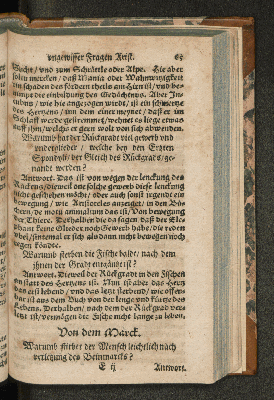 ungewisser Fragen Arist. 65
Sucht / und zum Schrättle oder Alpe. Hie aber
sollen mercken / daß Mania oder Wahnwitzigkeit
ein schaden des fördern theils am Hirn ist / und be-
nimpt die einbildung des Gedächtens. Aber In-
cubus / wie hie angezogen wirdt / ist ein schmertze
des Hertzens / um dem einer meynet / daß er im
Schlaff werde gestremmet / wehnet es liege etwas
auff ihm / welchs er gern wolt von sich abwenden.
Warumb hat der Rückgradt viel gewerb und
undergliecher / welche bey den Ertzten
Spondyli / der Gleich des Rückgrats / ge-
nandt werden?
Antwort. Das ist von wegen der lenckung des
Rückens / dieweil one solche gewerb diese lenckung
nicht geschehen möchte / oder auch sonst irgendt ein
bewegung / wie Aristoteles anzeiget / in den Bü-
chern, De motu animalium das ist / Von bewegung
der Thiere. Derhalben die da sagen daß der Ele-
phant keine Glieder noch Gewerb habe / die reden
ubel / sintemal er sich als dann nicht bewegen noch
regen köndte.
Warumb sterben die Fische balde / nach dem
ihnen der Gradt entzündet ist?
Antwort. Dieweil der Rückgradt in den Fischen
an statt des Hertzens ist. Nun ist aber das Hertz
das erst lebend / und das letzt sterbend / wie offen-
bar ist aus dem Buch von der lenge und kürtze des
Lebens. Derhalben / nach dem der Rückgrad ver-
letzt ist / vermögen die Fische nicht lange zu leben.
Von dem Marck.
Warumb stirbet der Mensch leichtlich nach
verletzung des Beinmarcks?
E ij Antwort.